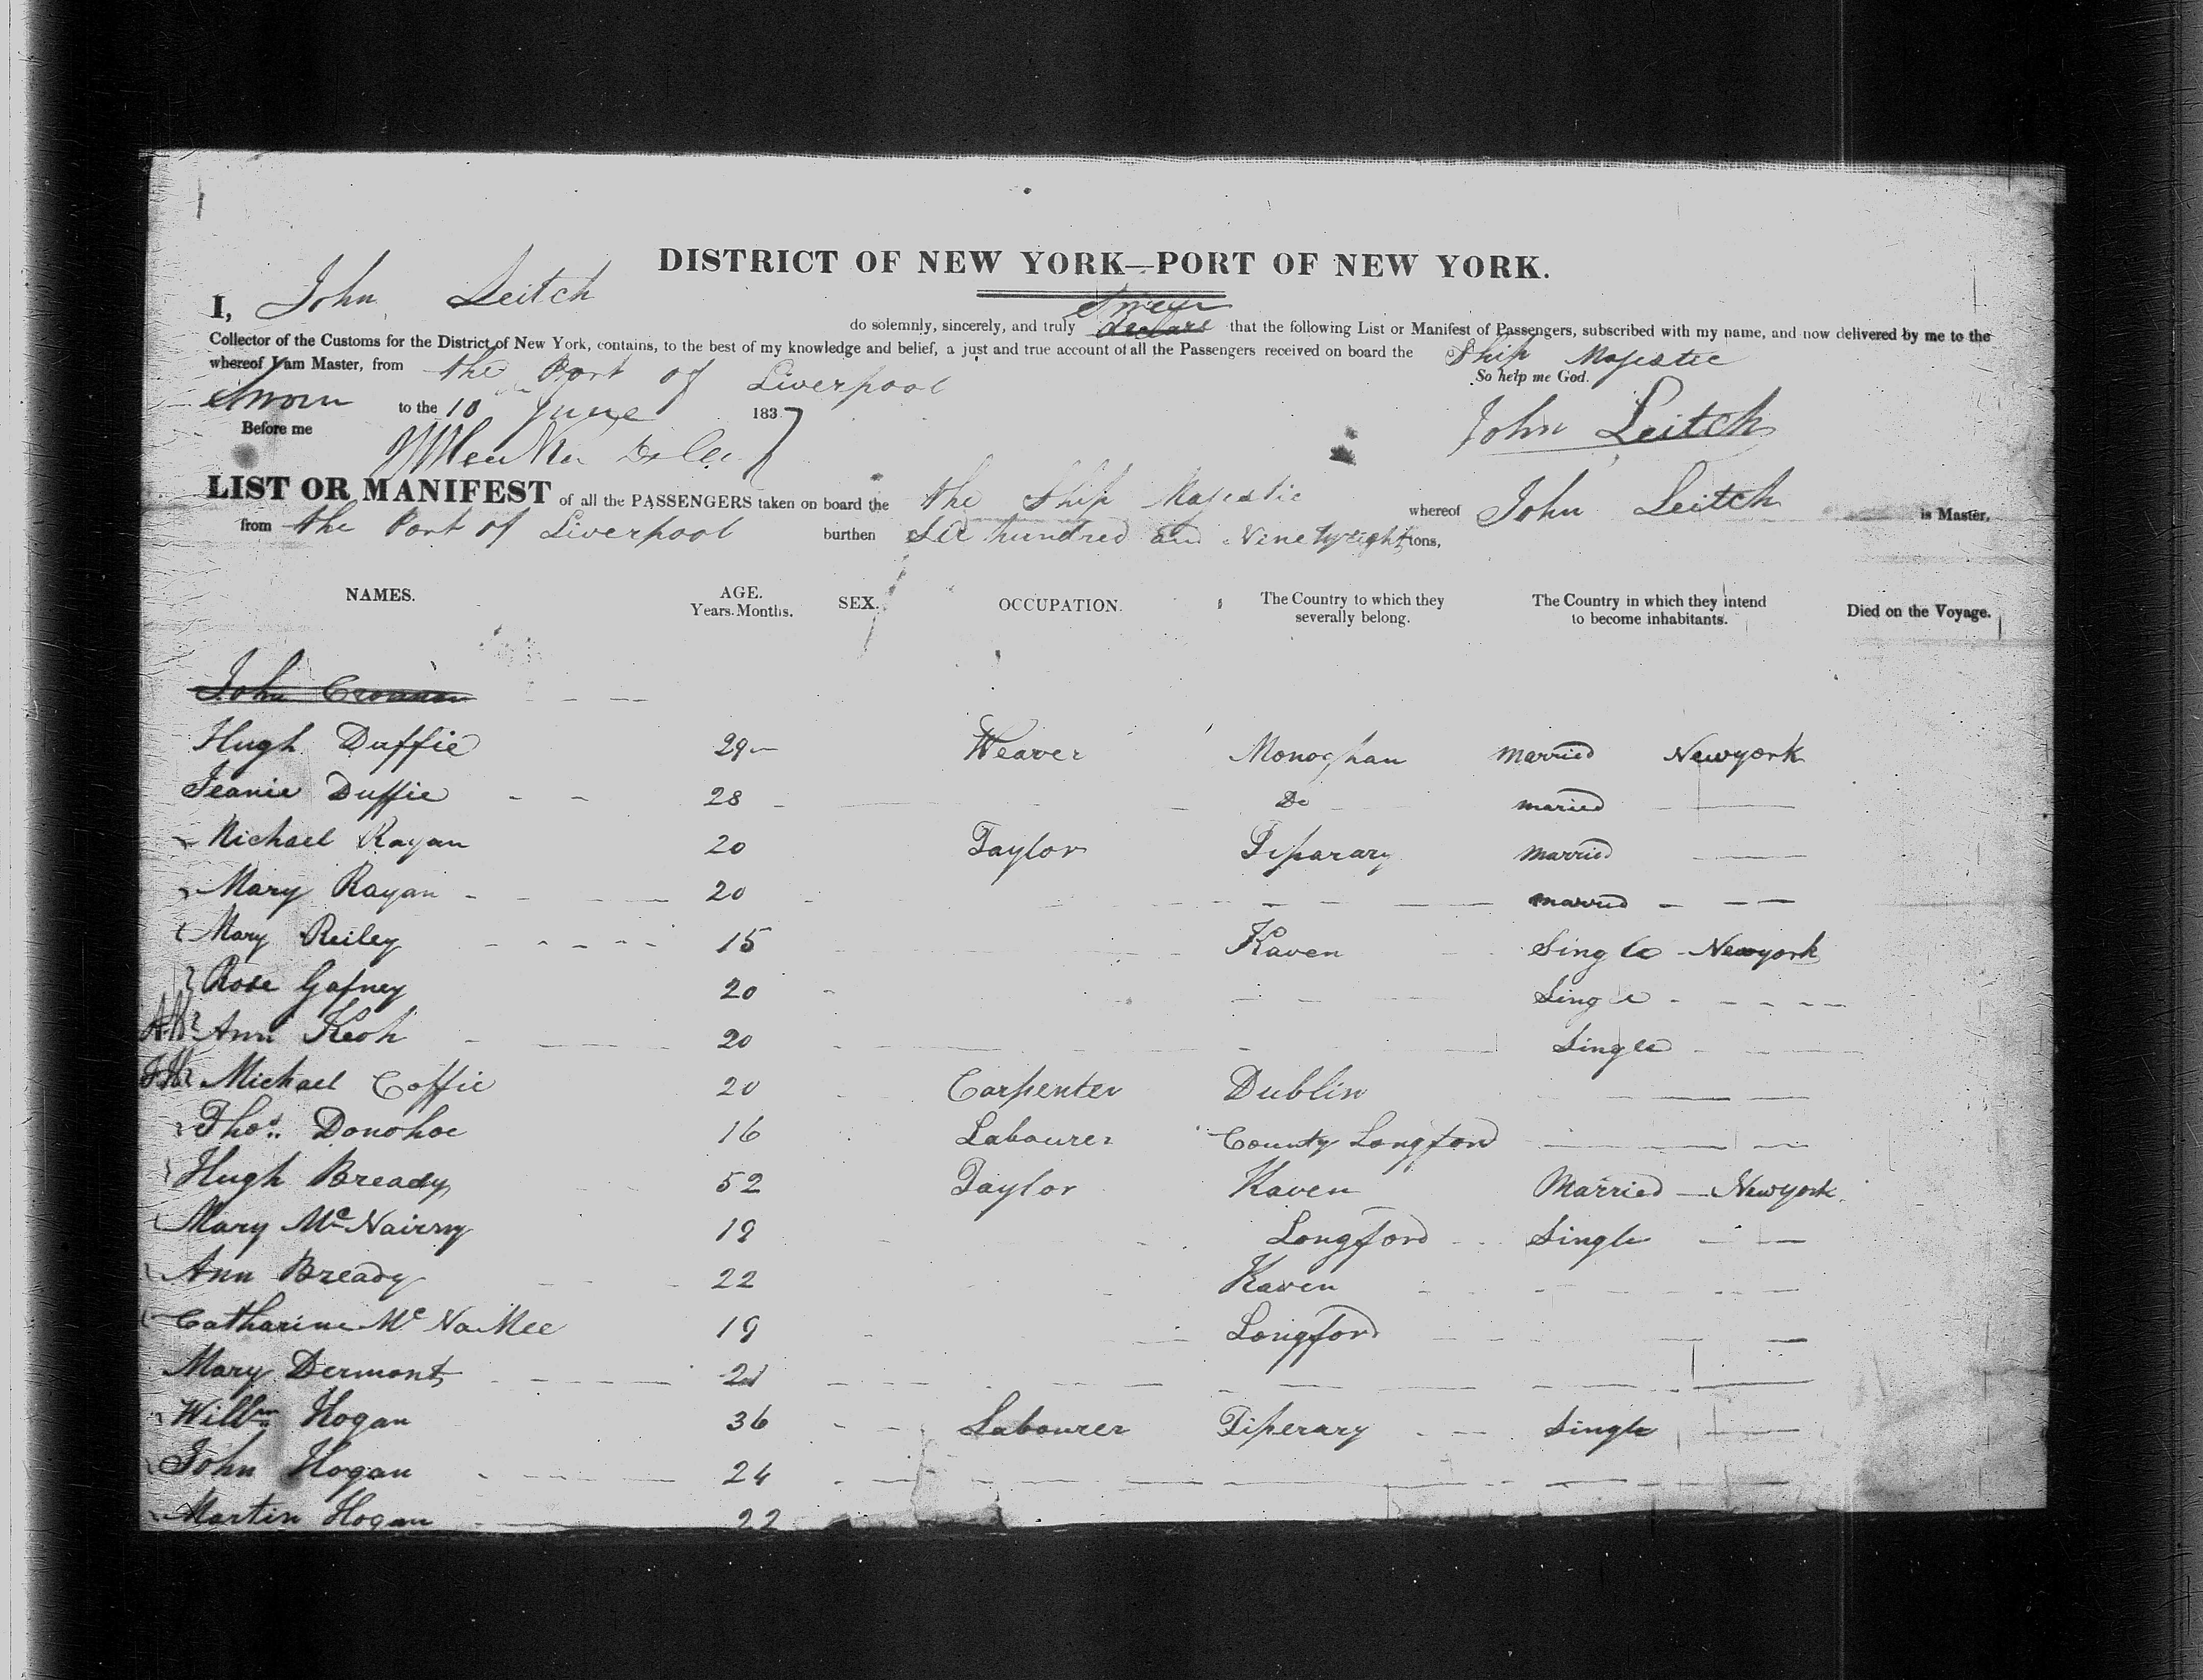 DISTRICT OF NEW YORK—PORT OF NEW YORK.
I, John Leitch do solemnly, sincerely, and truly swear declare that the following List or Manifest of Passengers, subscribed with my name, and now delivered by me to the
Collector of the Customs for the District of New York, contains, to the best of my knowledge and belief, a just and true account of all the Passengers received on board the Ship Majestic
whereof I am Master, from the Port of Liverpool So help me God.
Sworn to the 10 June 1837
Before me John Leitch
LIST OR MANIFEST of all the PASSENGERS taken on board the the Ship Majestic whereof John Leitch is Master,
from the Port of Liverpool burthen Six hundred and Ninetyeight tons,
NAMES. AGE. Years. Months. SEX. OCCUPATION. The Country to which they severally belong. The Country in which they intend to become inhabitants. Died on the Voyage.
John
Hugh Duffie 29 Weaver Monoghan Married Newyork
Jeanie Duffie 28 Do maried
Michael Rayan 20 Taylor Tiparary Married
Mary Rayan 20 married
Mary Reiley 15 Kaven Single Newyork
Rose Gafney 20 Single
Ann Keoh 20 Single
Michael Coffie 20 Carpenter Dublin
Thos. Donohoe 16 Labourer County Longford
Hugh Bready 52 Taylor Kaven Married Newyork
Mary Mc Nairny 19 Longford Single
Ann Bready 22 Kaven
Catharine Mc NaMee 19 Longford
Mary Dermont 21
Willm Hogan 36 Labourer Tiperary Single
John Hogan 24
Martin Hogan 22